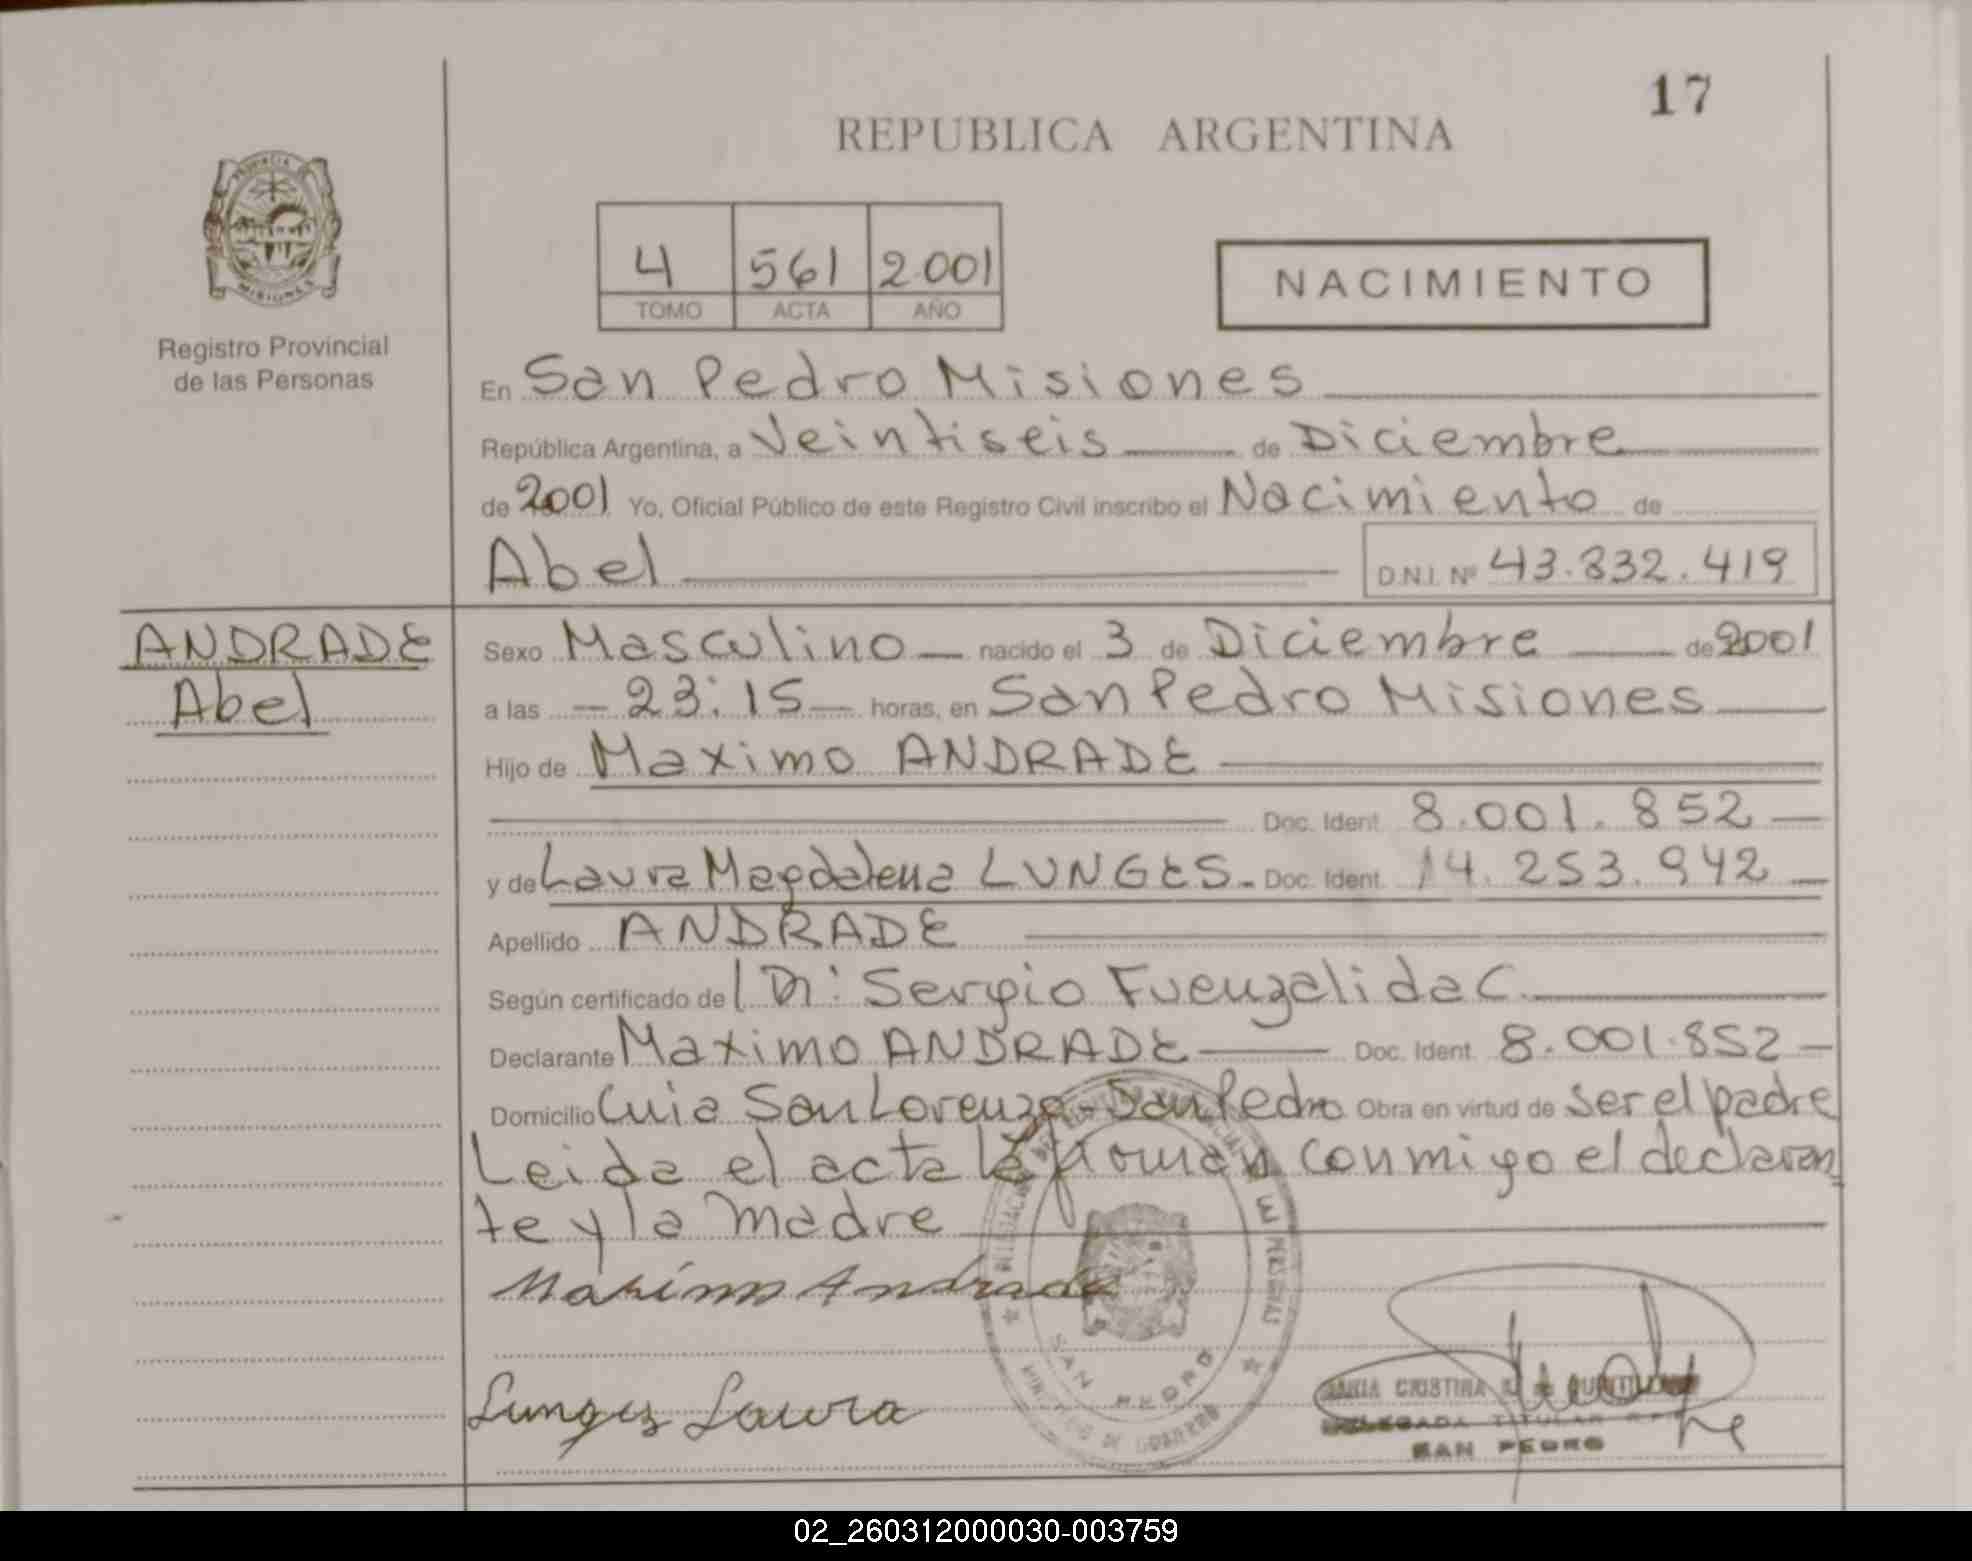 17
REPUBLICA ARGENTINA
PROVINCIA DE
MISIONES
Registro Provincial
de las Personas
4 561 2001
TOMO ACTA AÑO
NACIMIENTO
En San Pedro Misiones
República Argentina, a Veintiseis de Diciembre
de 2001 Yo, Oficial Público de este Registro Civil inscribo el Nacimiento de
Abel D.N.I. Nº 43.832.419
ANDRADE
Abel
Sexo Masculino nacido el 3 de Diciembre de 2001
a las 23:15 horas, en San Pedro Misiones
Hijo de Maximo ANDRADE
Doc. Ident. 8.001.852
y de Laura Magdalena LUNGES. Doc. Ident. 14.253.942
Apellido ANDRADE
Según certificado de Dr. Sergio Fuenzalida C.
Declarante Maximo ANDRADE Doc. Ident. 8.001.852
Domicilio Cuia San Lorenzo - San Pedro Obra en virtud de ser el padre
Leida el acta la firman conmigo el declaran
te y la madre
Maximo Andrade
Lunges Laura
SAN PEDRO
MINISTERIO DE GOBIERNO
MARIA CRISTINA
DELEGADA TITULAR
SAN PEDRO
02_260312000030-003759